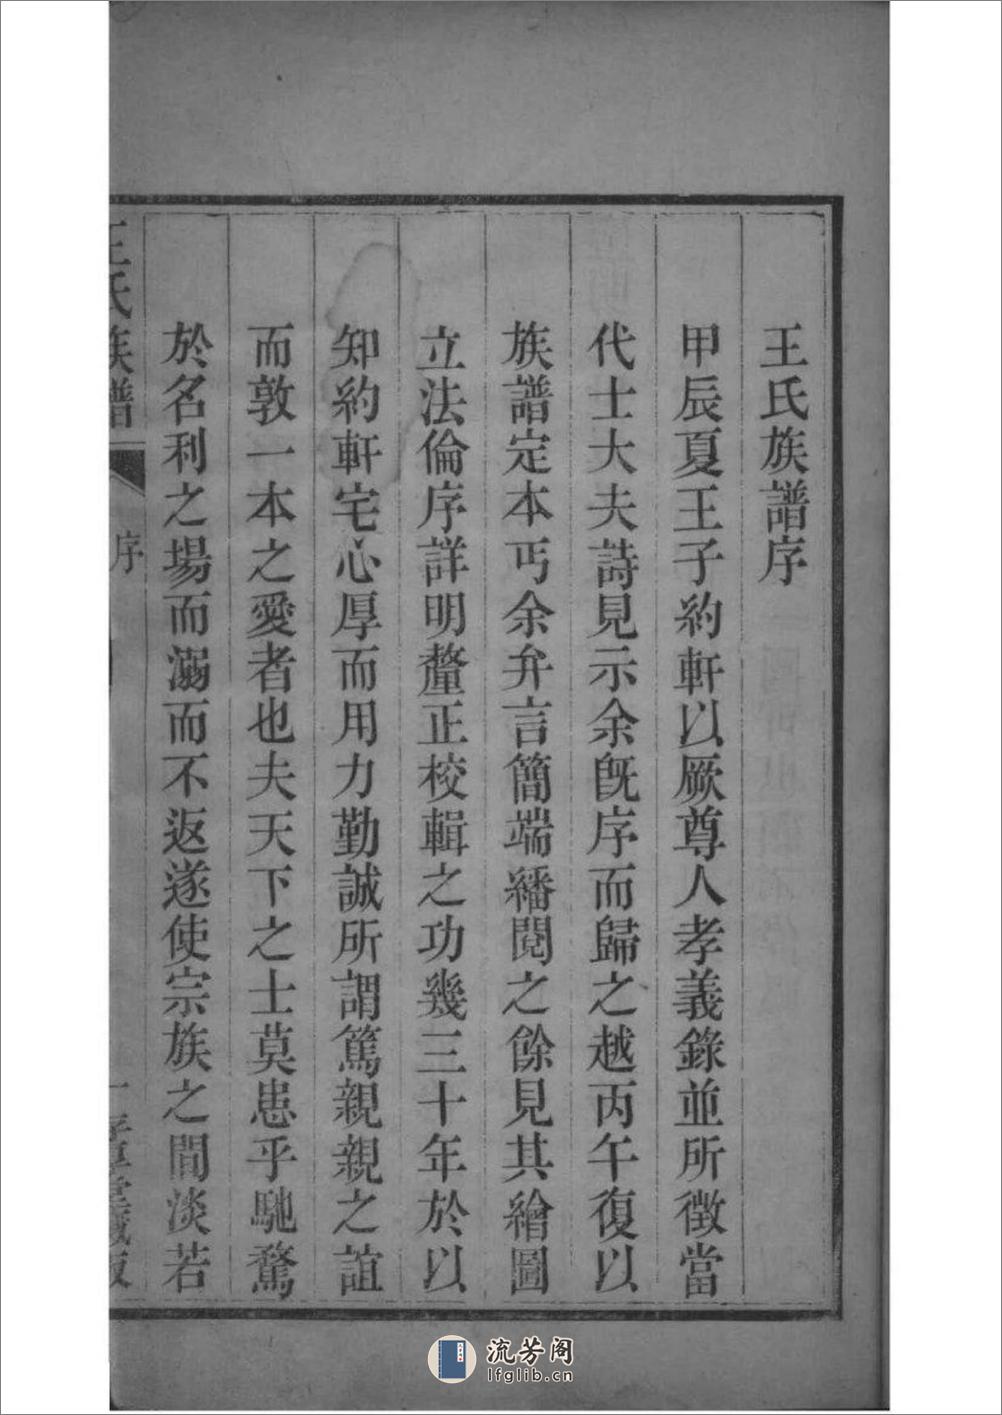 王氏族譜序
甲辰夏王子約軒以厥尊人孝義錄並所徵當
代士大夫詩見示余旣序而歸之越丙午復以
族譜定本丐余弁言簡端繙閱之餘見其繪圖
立法倫序詳明釐正校輯之功幾三十年於以
知約軒宅心厚而用力勤誠所謂篤親親之誼
而敦一本之愛者也夫天下之士莫患乎馳騖
於名利之場而溺而不返遂使宗族之間淡若
王氏族譜
序
流芳阁
lfglib.cn